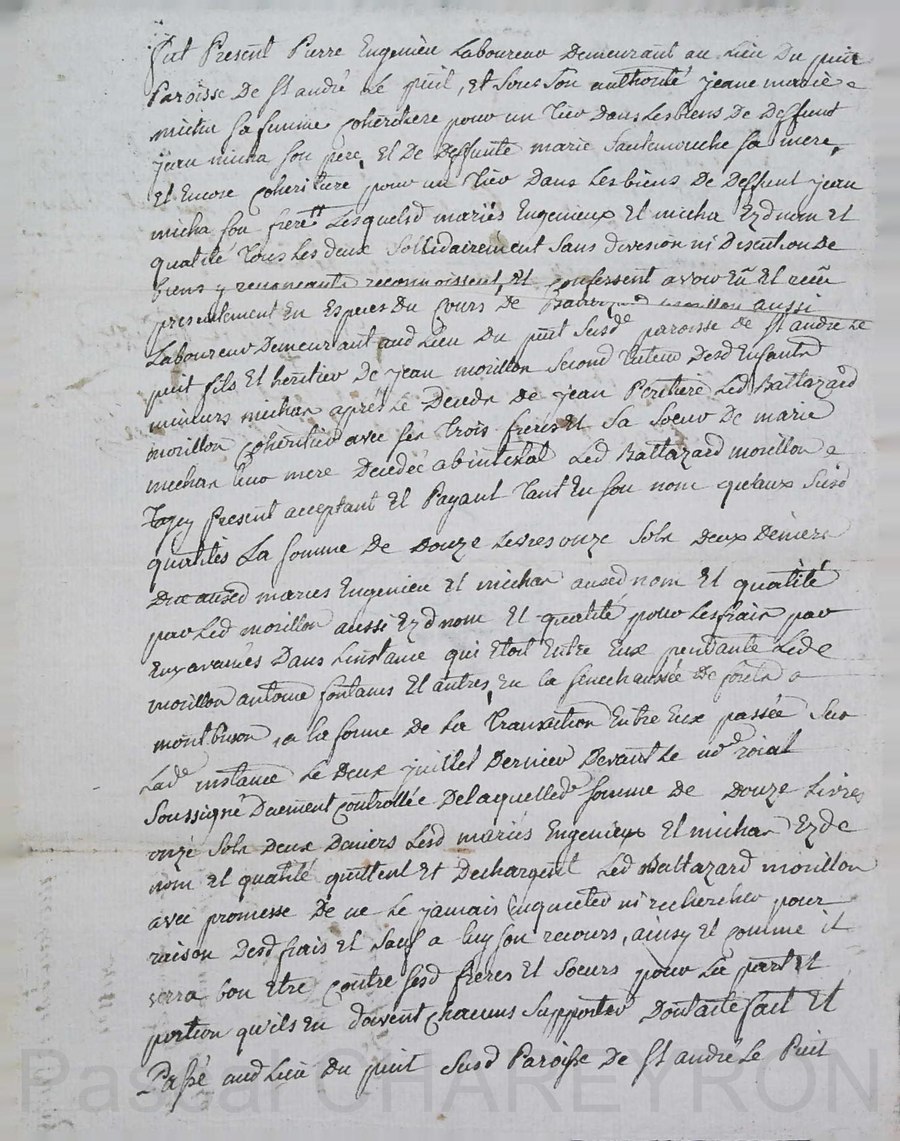 Fut Present Pierre Engenieu Laboureur Demeurant au Lieu Du puit
Paroisse De St andré Le puit, Et Sous Son authorité jeane marie
micha Sa femme Coheritiere pour un Tier Dans Les biens De Deffunt
jean micha son pere, Et De Deffunte marie Santemouche sa mere,
Et Encore Coheritiere pour un Tier Dans Les biens De Deffunt jean
micha son frere Lesquels mariés Engenieux Et micha Ezd nom Et
qualité Tous Les deux Sollidairement Sans Division ni Discution De
biens y renonceants reconnoissent, Et confessent avoir Eû Et recû
presentement En Especes Du Cours De morillon aussi
Laboureur Demeurant aud Lieu Du puit Susde paroisse De St andre Le
puit fils Et heritier De jean morillon Second Tuteur Desd Enfants
mineurs michas après Le Deceds De jean Led Baltazard
morillon Coheritier avec ses Trois freres Et Sa Soeur De marie
michas Leur mere Decedée abintestat Led Baltazard morillon
Present acceptant Et Payant Tant En son nom qu'aux Susd
qualités La somme De Douze Livres onze Sols Deux Deniers
ausd mariés Engenieu Et michas ausd nom Et qualité
par Led morillon aussi Ezd nom Et qualité pour Les frais par
Eux avancés Dans Linstance qui Etoit Entre Eux pendante Led
morillon antoine fontanes Et autres, En la Senechaussée De forets a
montbrison, a la forme De La Transaction Entre Eux passée Sur
Lade instance Le Deux juillet Dernier Devant Le nore roial
Soussigné Duement Controllée De Laquelle somme De Douze Livres
onze Sols Deux Deniers Lesd mariés Engenieux Et michas Ezd
nom Et qualité quittent Et Dechargent Led Baltazard morillon
avec promesse De ne Le jamais Enquieter ni rechercher pour
raison Desd frais Et Sauf a luy son recours, ainsy Et comme il
verra bon Etre Contre sesd freres Et Soeurs pour La part Et
portion qu'ils En doivent Chacuns Supporter Dont acte fait Et
Passé aud Lieu Du puit Susd Paroisse De St andré Le Puit
Pascal CHAREYRON